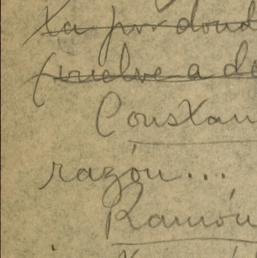 ta por dond
(vuelve a de
Constan
razón...
Ramón